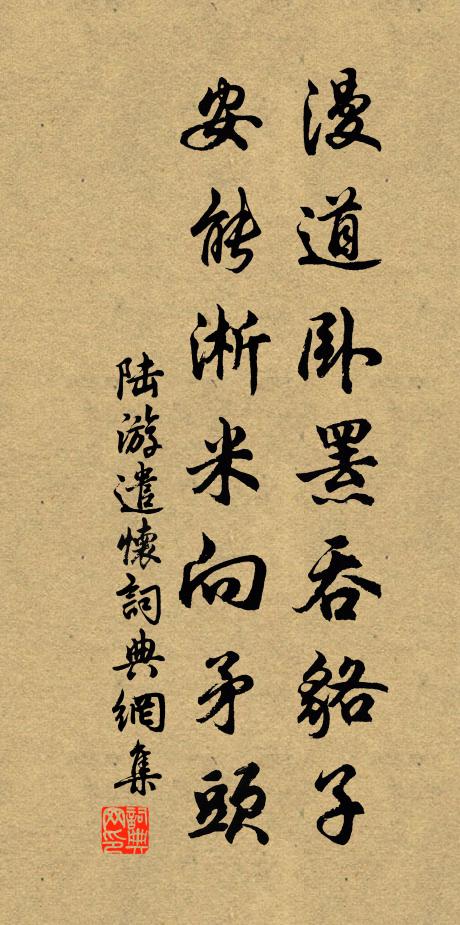 漫道卧罴吞貉子
安能淅米向矛頭
陆游遣懷詞典網集
詞典网印